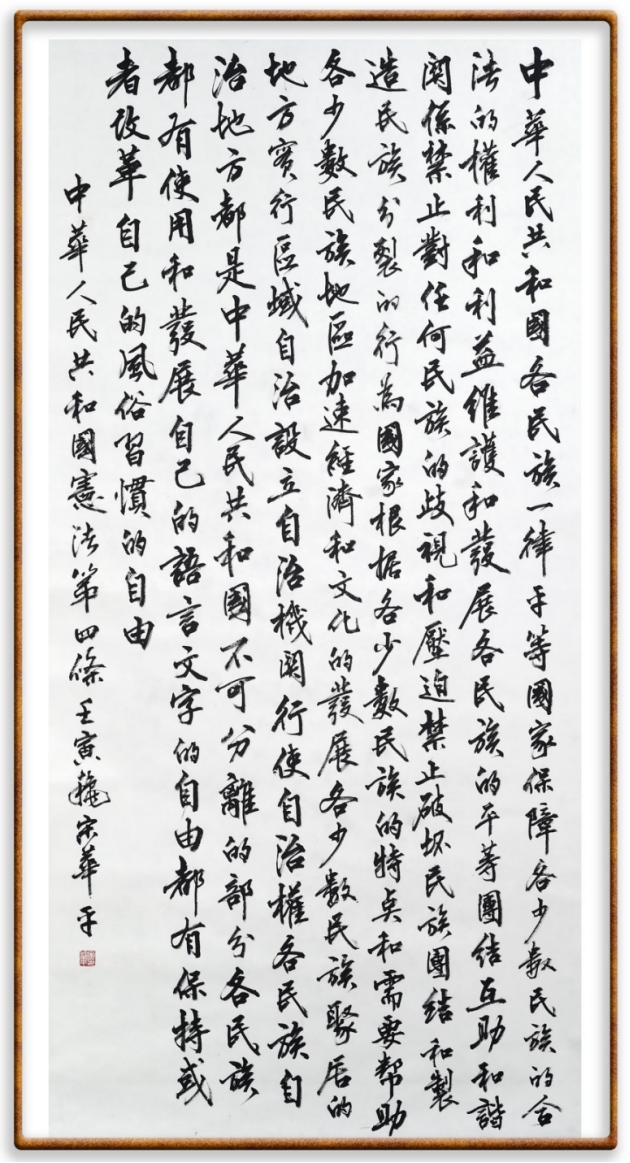 中華人民共和國各民族一律平等國家保障各少數民族的合
法的權利和利益維護和發展各民族的平等團結互助和諧
関係禁止對任何民族的歧視和壓迫禁止破坏民族團結和製
造民族分裂的行為國家根据各少數民族的特点和需要幫助
各少數民族地區加速經濟和文化的發展各少數民族聚居的
地方實行區域自治設立自治機関行使自治權各民族自
治地方都是中華人民共和國不可分離的部分各民族
都有使用和發展自己的語言文字的自由都有保持或
者改革自己的風俗習慣的自由
中華人民共和國憲法第四條壬寅穐宋華平